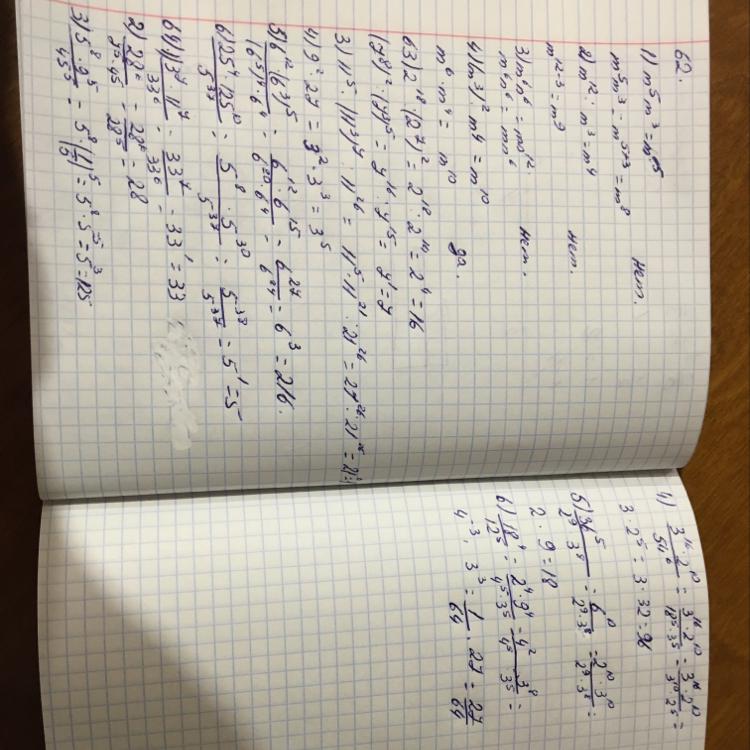 62.
1) m⁵m³ = m¹⁵ нет.
m⁵m³ = m⁵⁺³ = m⁸
2) m¹² : m³ = m⁴ нет.
m¹²⁻³ = m⁹
3) m⁶m⁶ = m¹² нет.
m⁶m⁶ = m⁶
4) (m³)² · m⁴ = m¹⁰ да.
m⁶ m⁴ = m¹⁰
63) 2¹⁸ : (2⁷)² = 2¹⁸ : 2¹⁴ = 2⁴ = 16
= y¹⁶ : y¹⁵ = y¹ = y
3) 11⁵ · (11³)⁷ : 11²⁶ = 11⁵ · 11²¹ :
4) 9² · 27 = 3² · 3³ = 3⁵
5) 6¹² · (6³)⁵ / (6⁵)⁴ · 6⁴ = 6¹² · 6¹⁵ / 6²⁰ · 6⁴ = 6²⁷ / 6²⁴ = 6³ = 216.
6) 25⁴ · 125¹⁰ / 5³⁷ = 5⁸ · 5³⁰ / 5³⁷ = 5³⁸ / 5³⁷ = 5¹ = 5
64) = 33⁷ / 33⁶ = 33¹ = 33
2) 28⁶ = 28⁶ / 28⁵ = 28
3) 5⁸ · 9⁵ / 45⁵ = 5⁸ · = 5⁸ · 5⁻⁵ = 5³ = 125
4) 3¹⁶ · 2¹⁰ / 54⁶ = 3¹⁶ · 2¹⁰ / 18⁵ · 3⁵ = 3¹⁶ · 2¹⁰ / 3¹⁰ · 2⁵ =
3 · 2⁵ = 3 · 32 = 96
5) 36⁵ / 2⁹ · 3⁸ = 6¹⁰ / 2⁹ · 3⁸ = 2¹⁰ · 3¹⁰ / 2⁹ · 3⁸ =
2 · 9 = 18
6) 18⁴ / 12⁵ = 2⁴ · 9⁴ / 4⁵ · 3⁵ = 4² / 4⁵ · 3⁸ / 3⁵ =
4⁻³ · 3³ = 1 / 64 · 27 = 27 / 64